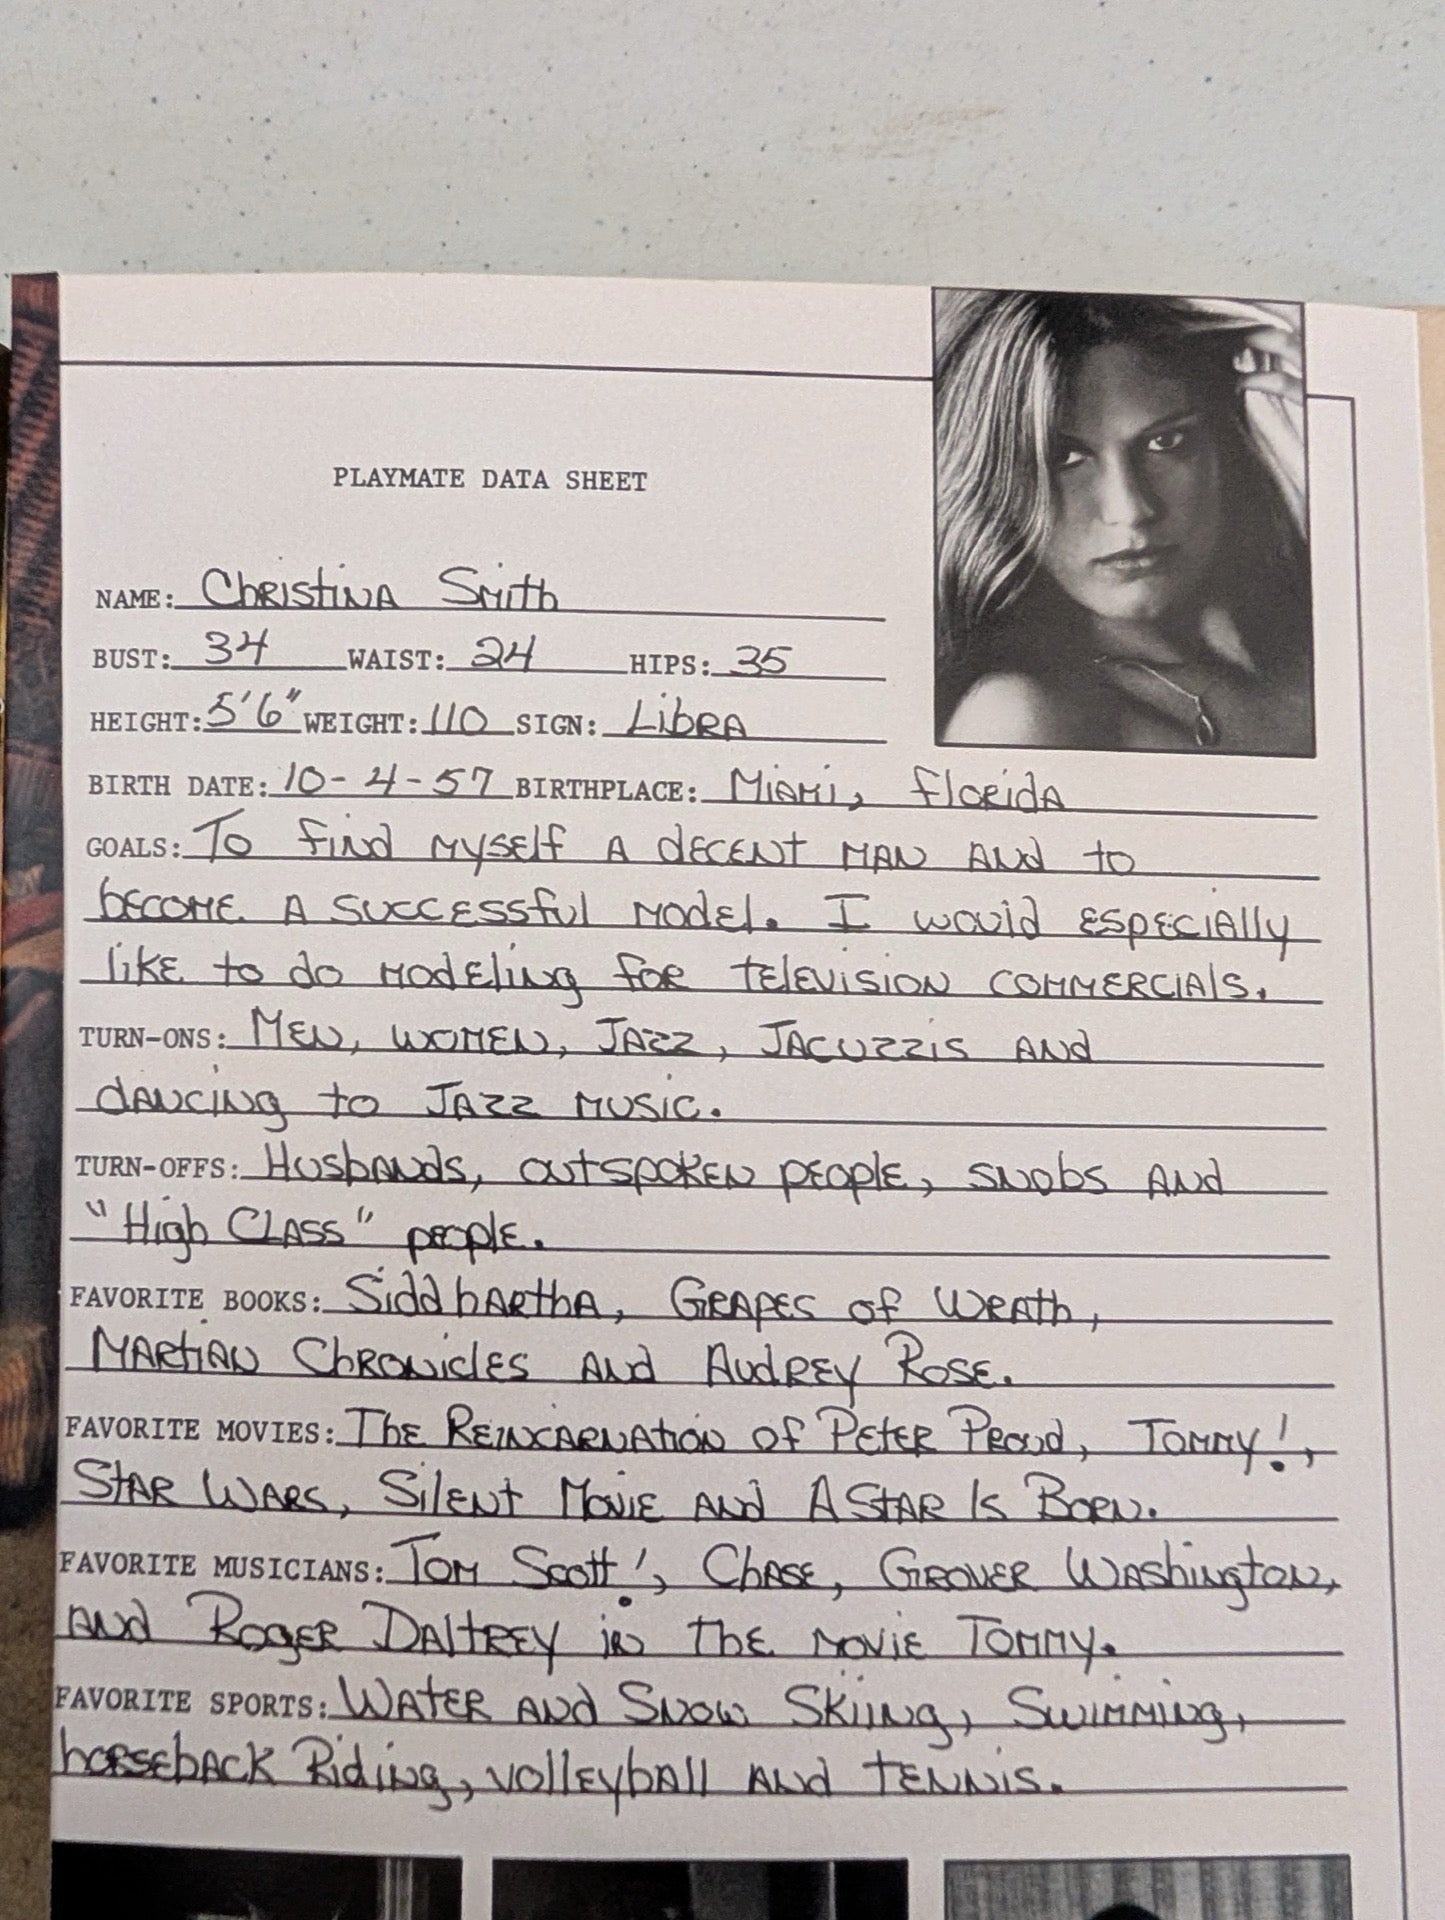 PLAYMATE DATA SHEET
NAME: Christina Smith
BUST: 34 WAIST: 24 HIPS: 35
HEIGHT: 5'6" WEIGHT: 110 SIGN: Libra
BIRTH DATE: 10-4-57 BIRTHPLACE: Miami, Florida
GOALS: To find myself a decent man and to
become a successful model. I would especially
like to do modeling for television commercials.
TURN-ONS: Men, women, Jazz, Jacuzzis and
dancing to Jazz music.
TURN-OFFS: Husbands, outspoken people, snobs and
"High Class" people.
FAVORITE BOOKS: Siddhartha, Grapes of Wrath,
Martian Chronicles and Audrey Rose.
FAVORITE MOVIES: The Reincarnation of Peter Proud, Tommy!,
Star Wars, Silent Movie and A Star Is Born.
FAVORITE MUSICIANS: Tom Scott!, Chase, Grover Washington,
and Roger Daltrey in the movie Tommy.
FAVORITE SPORTS: Water and Snow Skiing, Swimming,
horseback Riding, volleyball and tennis.